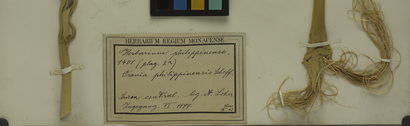 HERBARIUM REGIUM MONACENSE.
Herbarium philippinense.
1401 (plag. 2ª)
Orania philippinensis Scheff.
Luzon central. leg. A. Loher
Zugegang. VI. 1899.